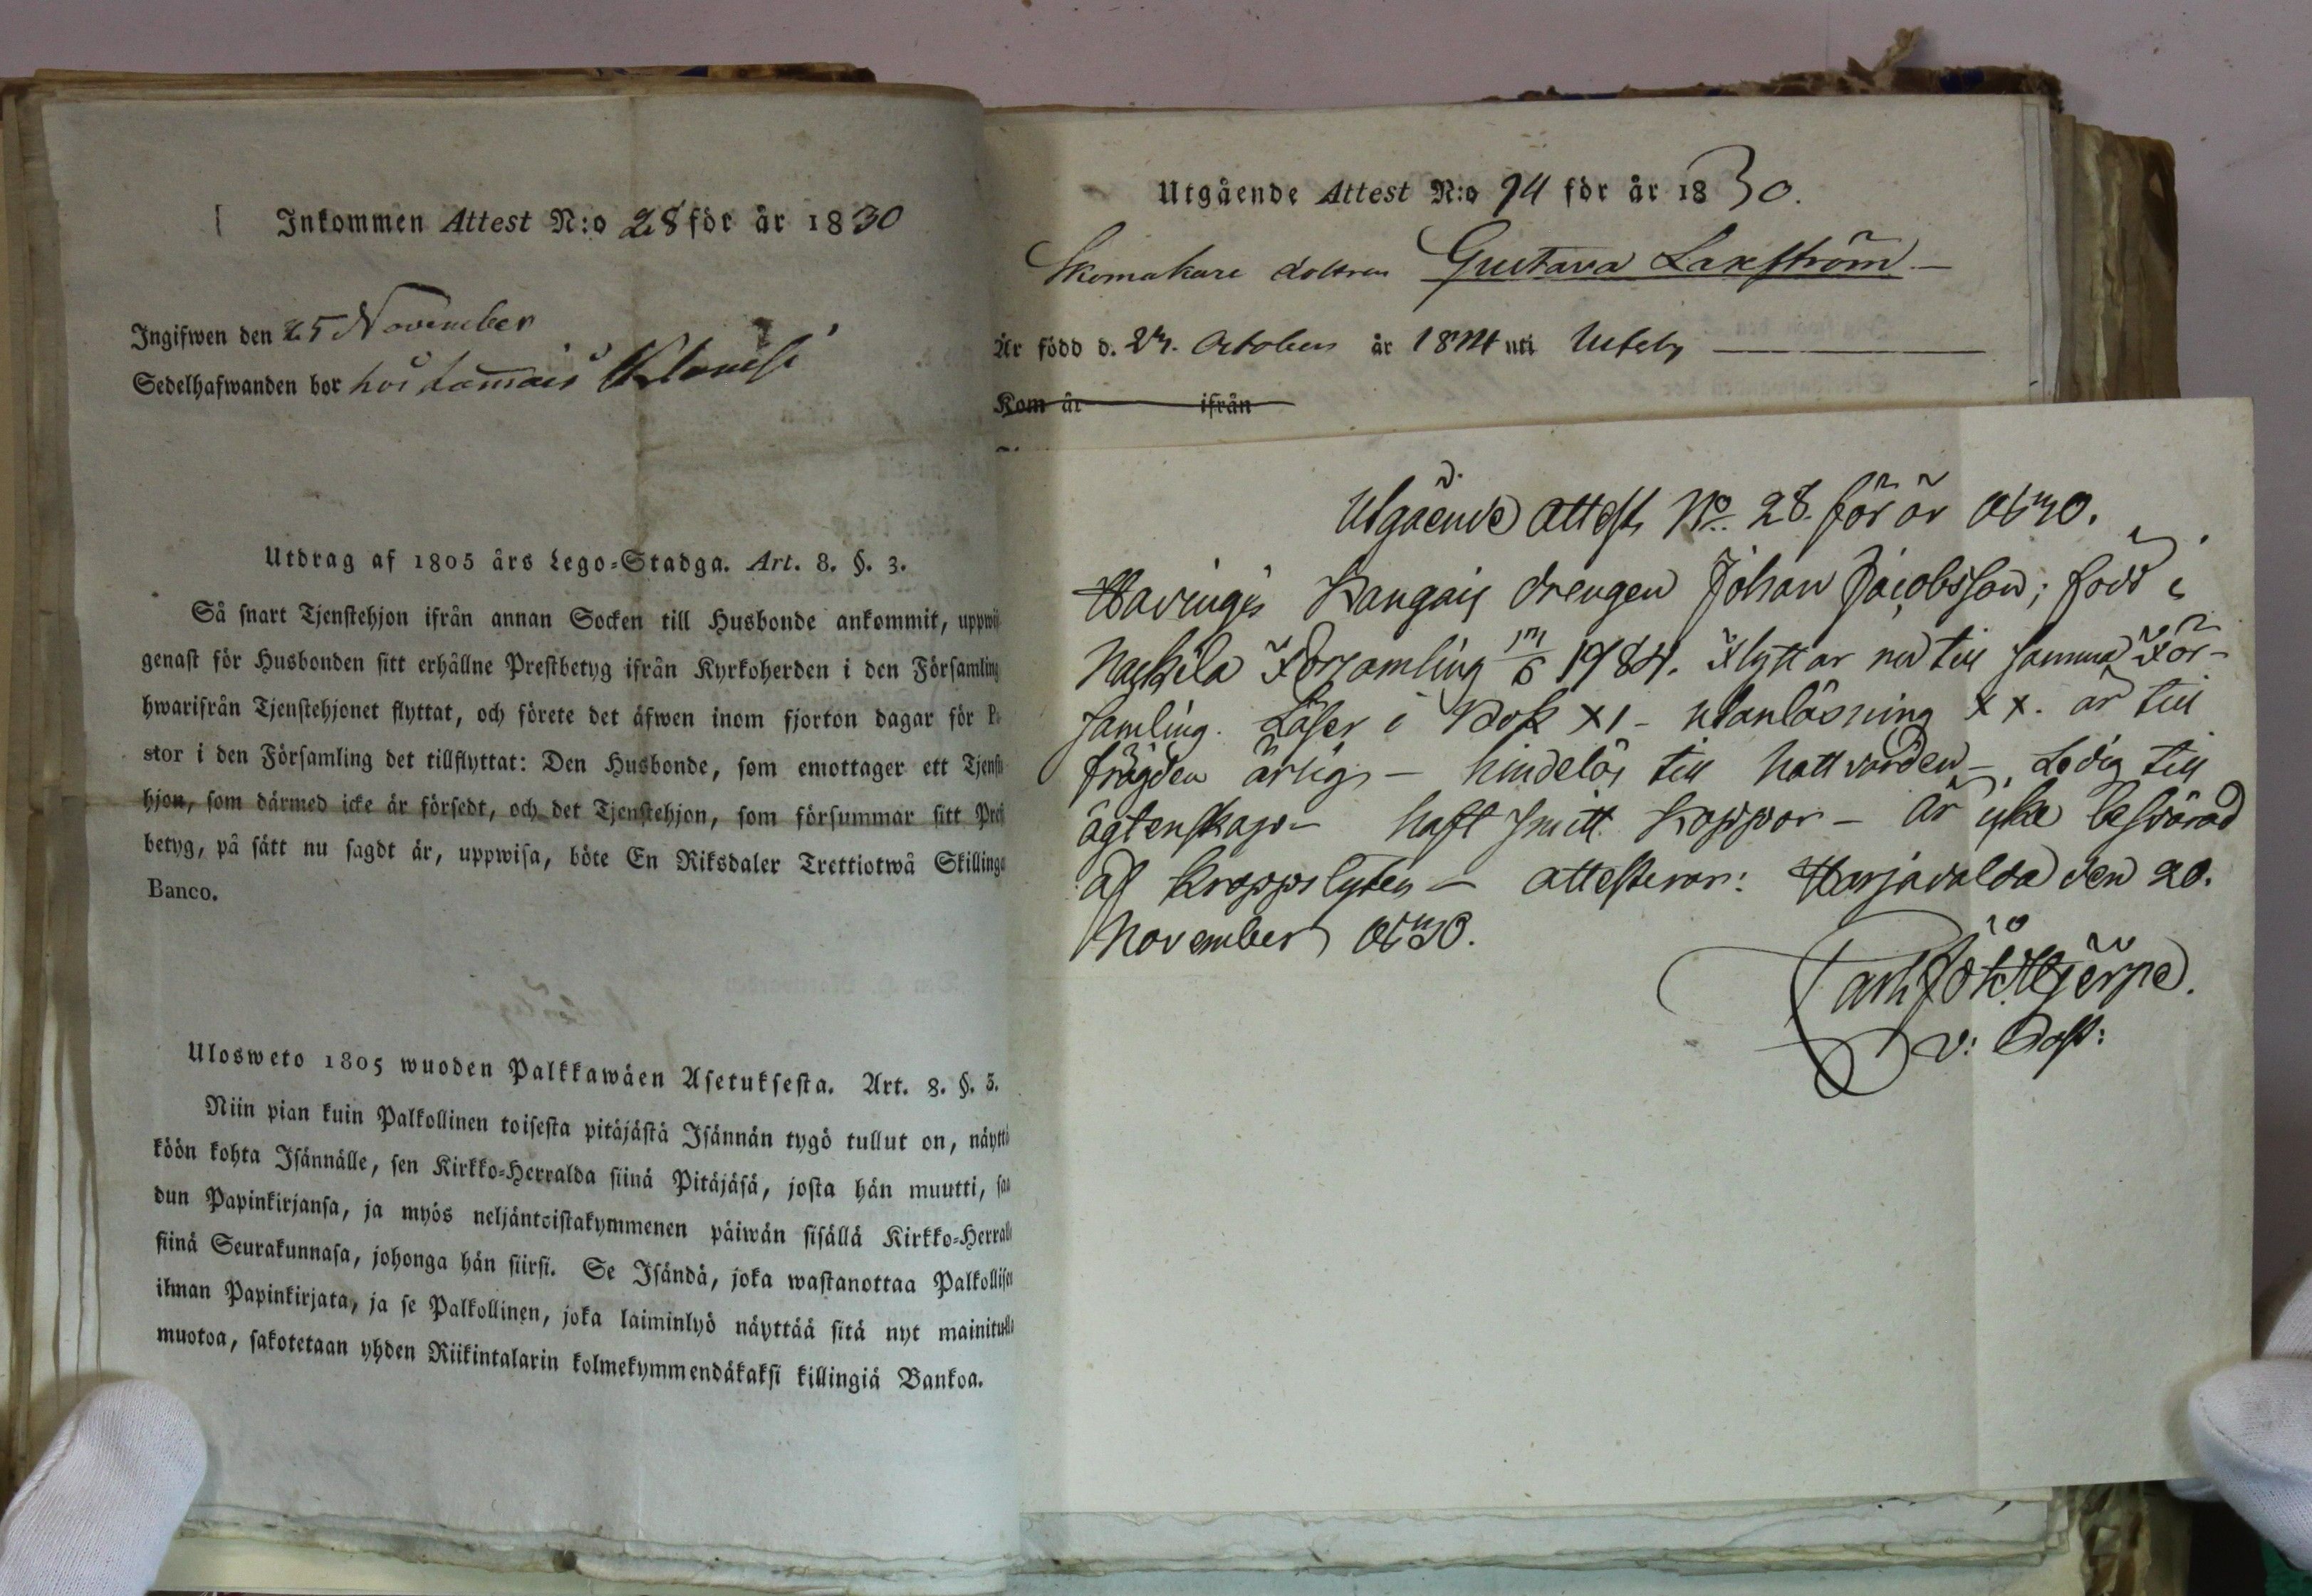 Inkommen Attest N:o 28 för år 1830
Ingifwen den 25 November
Sedelhafwanden bor hos
Utdrag af 1805 års Lego-Stadga. Art. 8. §. 3.
Så snart Tjenstehjon ifrån annan Socken till Husbonde ankommit, uppwi
genast för Husbonden sitt erhållne Prestbetyg ifrån Kyrkoherden i den Församling
hwarifrån Tjenstehjonet flyttat, och förete det äfwen inom fjorton dagar för P
stor i den Församling det tillflyttat: Den Husbonde, som emottager ett Tjenst
hjon, som därmed icke är försedt, och det Tjenstehjon, som försummar sitt Prest
betyg, på sätt nu sagdt är, uppwisa, böte En Riksdaler Trettiotwå Skillinga
Banco.
Ulosweto 1805 wuoden Palkkawäen Asetuksesta. Art. 8. §. 3.
Niin pian kuin Palkollinen toisesta pitäjästä Isännän tygö tullut on, näyttä
köön kohta Isännälle, sen Kirkko-Herralda siinä Pitäjäsä, josta hän muutti, saa
dun Papinkirjansa, ja myös neljäntoistakymmenen päiwän sisällä Kirkko-Herralle
siinä Seurakunnasa, johonga hän siirsi. Se Isändä, joka wastanottaa Palkollisen
ilman Papinkirjata, ja se Palkollinen, joka laiminlyö näyttää sitä nyt mainitulla
muotoa, sakotetaan yhden Riikintalarin kolmekymmendäkaksi killingiä Bankoa.
Utgående Attest N:o 14 för år 1830.
Skomakare dottren Gustava Laxström
Är född d. October år uti
Kom år ifrån
Utgående attest No 28. för år
Kangais drengen Johan Jacobsson; född i
Nakkila Församling 1784. Flyttar nu till samma För-
samling. Läser i Bok XI - utanläsning XX. är till
frägden ärlig - hinderlös till nattvarden - Ledig till
ägtenskap - haft Smitt Koppor - är icke besvärad
af Kroppslyten - attesterar: Harjavalda den 20.
November